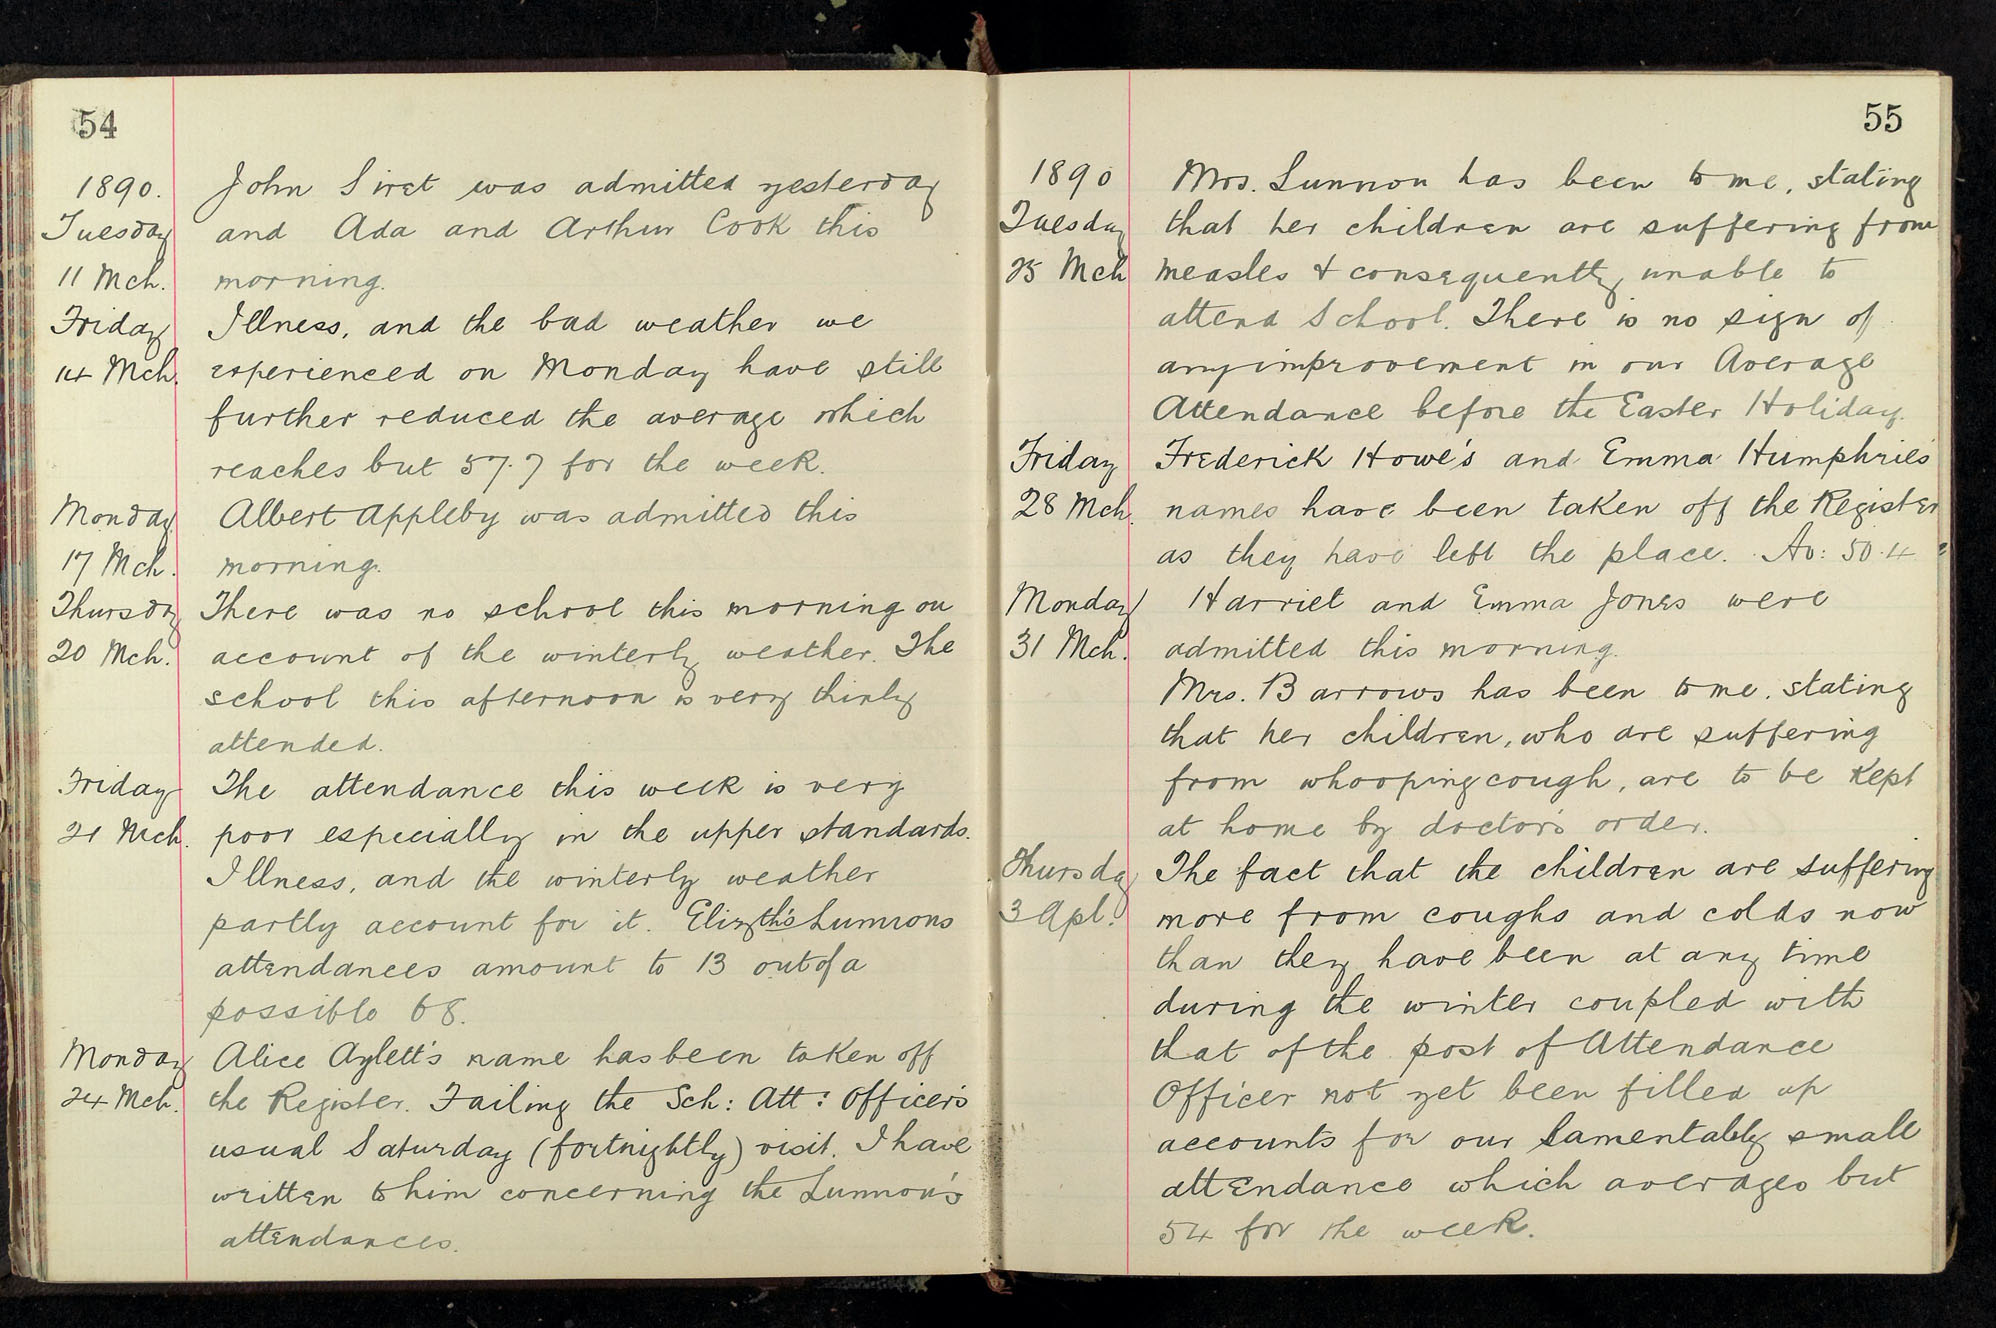 54
1890. John Siret was admitted yesterday
Tuesday and Ada and Arthur Cook this
11 Mch. morning.
Friday Illness, and the bad weather we
14 Mch. experienced on Monday have still
further reduced the average which
reaches but 57.7 for the week.
Monday Albert Appleby was admitted this
17 Mch. morning.
Thursday There was no school this morning on
20 Mch. account of the winterly weather. The
school this afternoon is very thinly
attended.
Friday The attendance this week is very
21 Mch. poor especially in the upper standards.
Illness, and the winterly weather
partly account for it. Elizth's Lunnons
attendances amount to 13 out of a
possible 68.
Monday Alice Aylett's name has been taken off
24 Mch. the Register. Failing the Sch: Att: Officer's
usual Saturday (fortnightly) visit. I have
written to him concerning the Lunnon's
attendances.
55
1890 Mrs. Lunnon has been to me, stating
Tuesday that her children are suffering from
25 Mch measles & consequently unable to
attend School. There is no sign of
any improvement in our Average
Attendance before the Easter Holiday.
Friday Frederick Howe's and Emma Humphries'
28 Mch. names have been taken off the Register
as they have left the place. Av: 50.4
Monday Harriet and Emma Jones were
31 Mch. admitted this morning.
Mrs. Barrows has been to me, stating
that her children, who are suffering
from whooping cough, are to be kept
at home by doctor's order.
Thursday The fact that the children are suffering
3 Apl. more from coughs and colds now
than they have been at any time
during the winter coupled with
that of the post of Attendance
Officer not yet been filled up
accounts for our lamentably small
attendance which averages but
54 for the week.